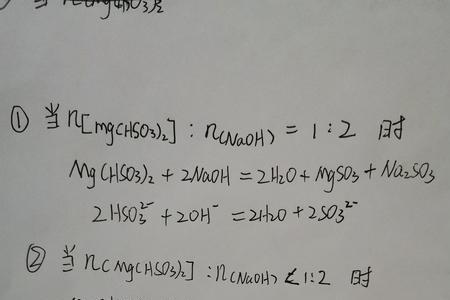 ① 当n[Mg(HSO₃)₂] : n(NaOH) = 1 : 2 时
Mg(HSO₃)₂ + 2NaOH = 2H₂O + MgSO₃ + Na₂SO₃
2HSO₃²⁻ + 2OH⁻ = 2H₂O + 2SO₃²⁻
② 当n(Mg(HSO₃)₂] : n(NaOH) < 1:2 时